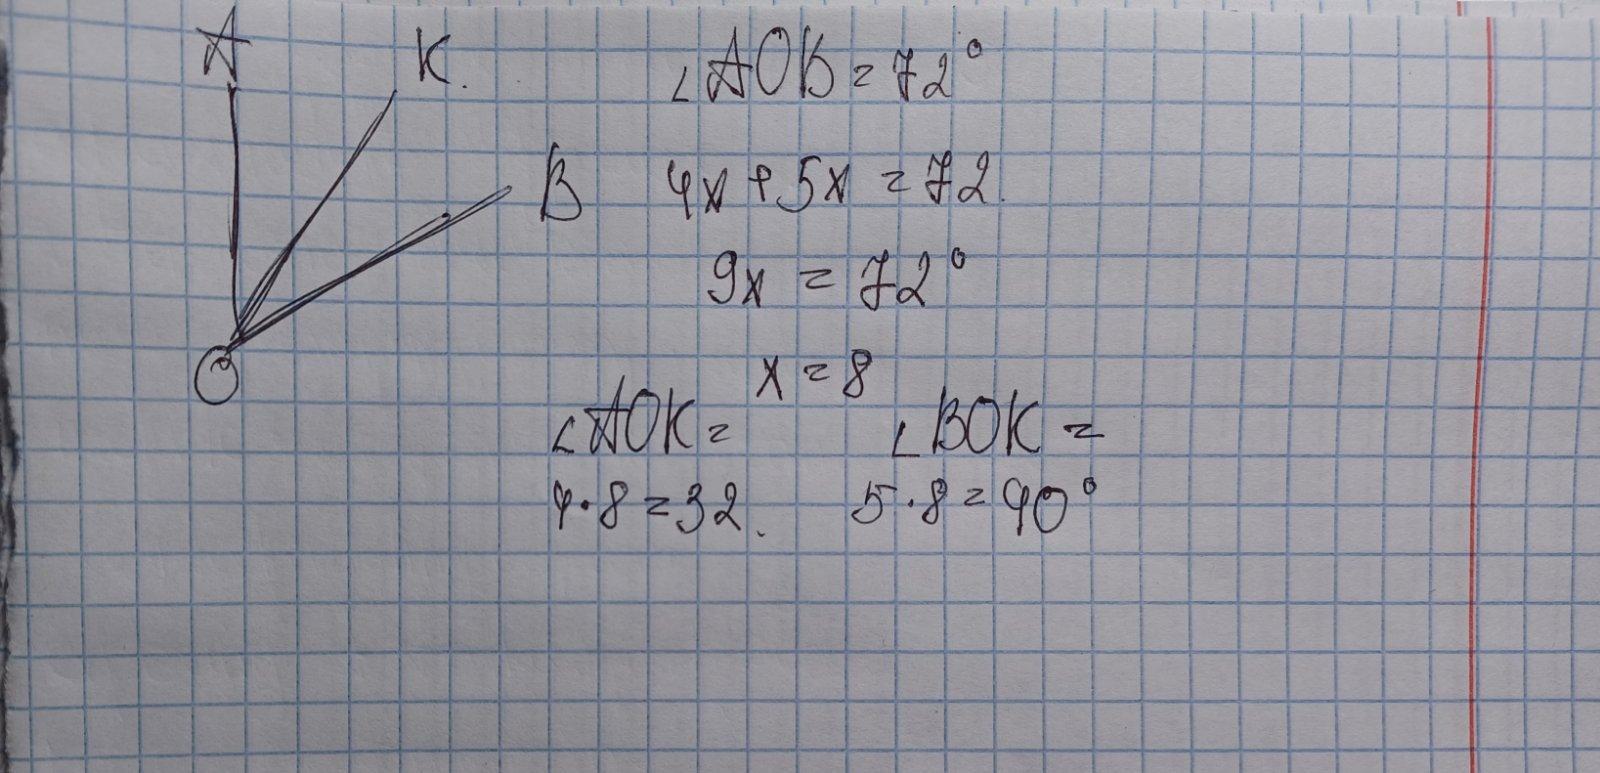 A K.
B
O
∠AOB = 72°
4x + 5x = 72.
9x = 72°
x = 8
∠AOK = ∠BOK =
4·8 = 32. 5·8 = 40°